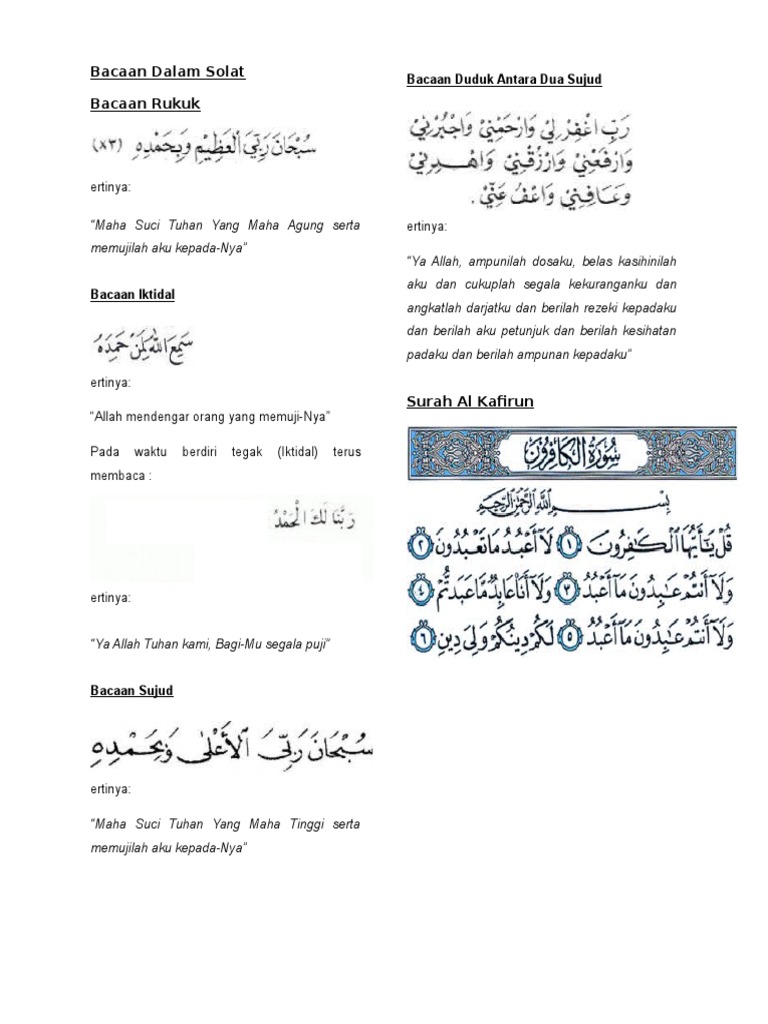 Bacaan Dalam Solat
Bacaan Rukuk
سُبْحَانَ رَبِّيَ الْعَظِيْمِ وَبِحَمْدِهِ (x٣)
ertinya:
“Maha Suci Tuhan Yang Maha Agung serta
memujilah aku kepada-Nya”
Bacaan Iktidal
سَمِعَ اللهُ لِمَنْ حَمِدَهُ
ertinya:
“Allah mendengar orang yang memuji-Nya”
Pada waktu berdiri tegak (Iktidal) terus
membaca :
رَبَّنَا لَكَ الْحَمْدُ
ertinya:
“Ya Allah Tuhan kami, Bagi-Mu segala puji”
Bacaan Sujud
سُبْحَانَ رَبِّيَ الْأَعْلَى وَبِحَمْدِهِ
ertinya:
“Maha Suci Tuhan Yang Maha Tinggi serta
memujilah aku kepada-Nya”
Bacaan Duduk Antara Dua Sujud
رَبِّ اغْفِرْ لِيْ وَارْحَمْنِيْ وَاجْبُرْنِيْ
وَارْفَعْنِيْ وَارْزُقْنِيْ وَاهْدِنِيْ
وَعَافِنِيْ وَاعْفُ عَنِّيْ .
ertinya:
“Ya Allah, ampunilah dosaku, belas kasihinilah
aku dan cukuplah segala kekuranganku dan
angkatlah darjatku dan berilah rezeki kepadaku
dan berilah aku petunjuk dan berilah kesihatan
padaku dan berilah ampunan kepadaku”
Surah Al Kafirun
سُورَةُ الْكَافِرُونَ
بِسْمِ اللَّهِ الرَّحْمَٰنِ الرَّحِيمِ
قُلْ يَٰٓأَيُّهَا ٱلْكَٰفِرُونَ ١ لَآ أَعْبُدُ مَا تَعْبُدُونَ ٢
وَلَآ أَنتُمْ عَٰبِدُونَ مَآ أَعْبُدُ ٣ وَلَآ أَنَا۠ عَابِدٌ مَّا عَبَدتُّمْ ٤
وَلَآ أَنتُمْ عَٰبِدُونَ مَآ أَعْبُدُ ٥ لَكُمْ دِينُكُمْ وَلِىَ دِينِ ٦